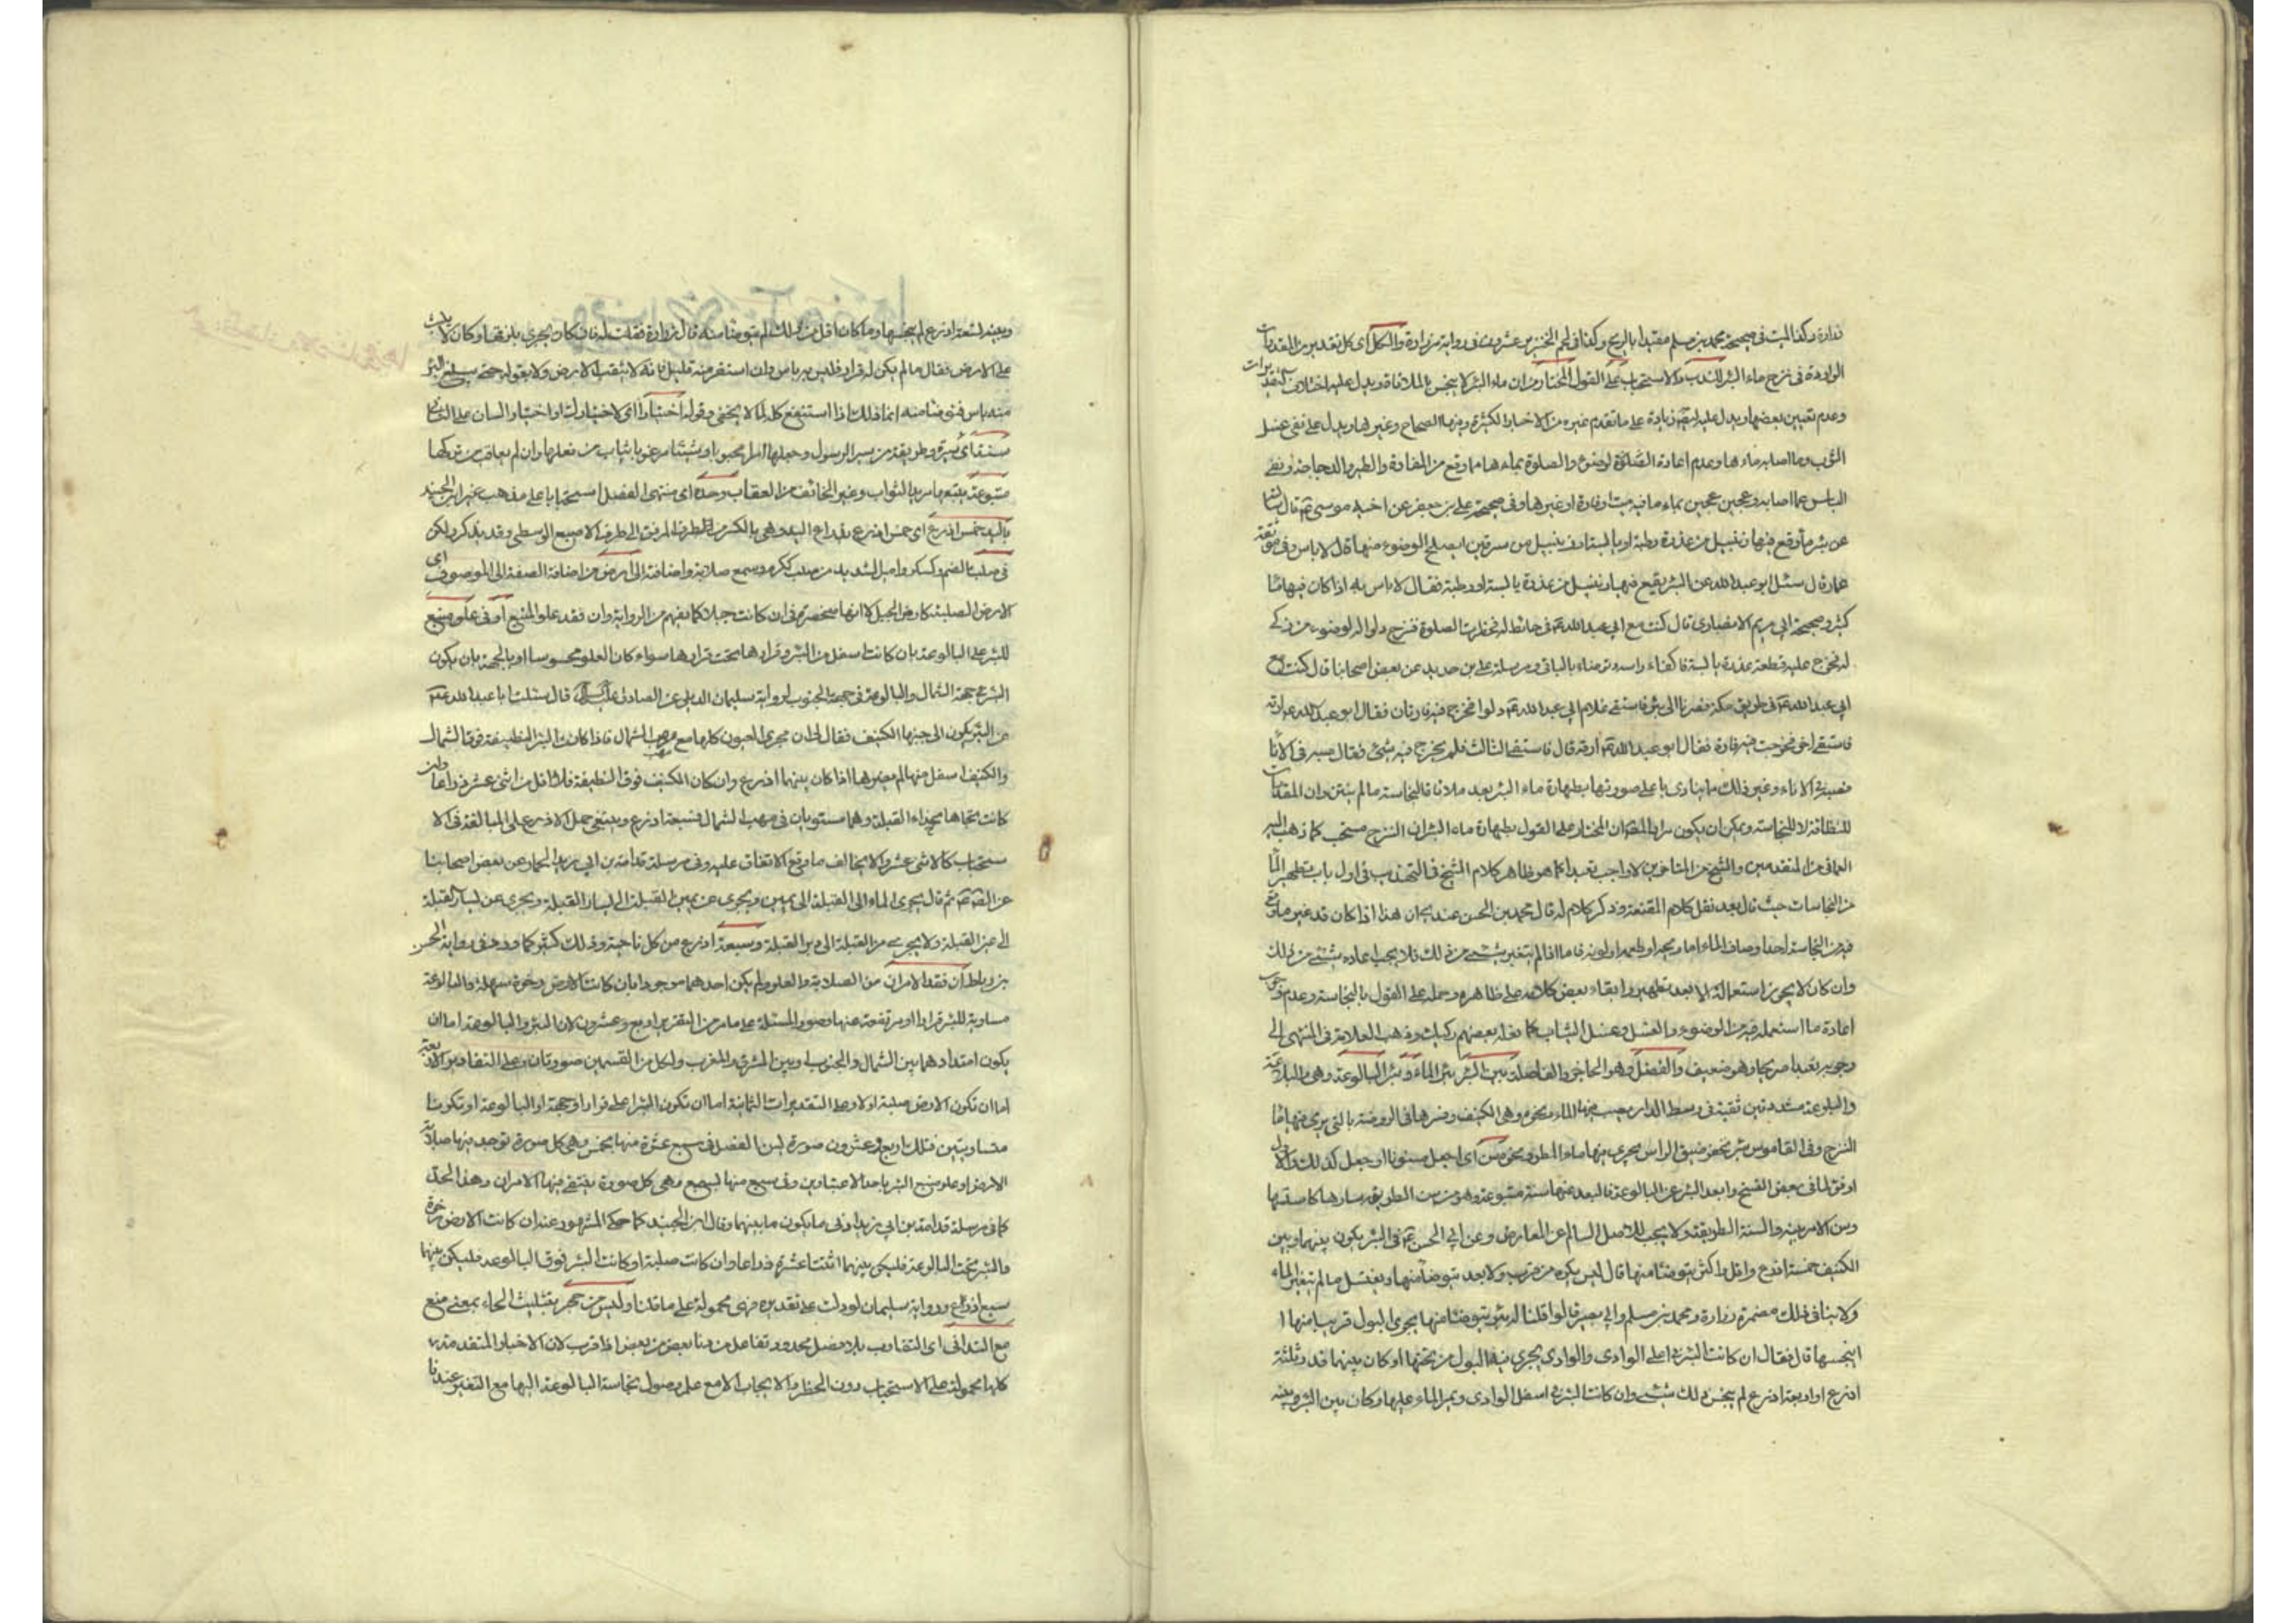 زرارة وكذا الميت في صحيحة محمد بن مسلم مقيدا بالريح وكذا في لحم الخنزير عشرون في رواية زرارة والكل اى كل تقدير من المقدرات
الواردة في نزح ماء البئر للندب والاستحباب على القول المختار من ان ماء البئر لا ينجس بالملاقاة ويدل عليه اختلاف التقديرات
وعدم تعيين بعضها ويدل عليه ايضا زيادة على ما تقدم غيره من الاخبار الكثيرة ومنها الصحاح وغيرها ويدل على نفى غسل
الثوب وما اصابه ماءها وعدم اعادة الصلوة لوضوء والصلوة بماءها مما وقع من الفارة والطير والدجاجة ونفى
الباس عما اصابه وعجين عجين بماء ما فيه ميت او فارة او غيرها وفي صحيحة على بن جعفر عن اخيه موسى ع قال سالته
عن بئر ما وقع فيها زنبيل من عذرة رطبة او يابسة او زنبيل من سرقين ايصلح الوضوء منها قال لا باس وفي موثقة
عمار قال سئل ابو عبد الله عن البئر يقع فيها زنبيل من عذرة يابسة او رطبة فقال لا باس به اذا كان فيها ماء
كثير وصحيحة ابي مريم الانصارى قال كنت مع ابي عبد الله ع في حائط له فحضرت الصلوة فنزح دلوا للوضوء من ركى
له فخرج عليه قطعة عذرة يابسة فاكفاء راسه وتوضاء بالباقى ومرسلة على بن حديد عن بعض اصحابنا قال كنت مع
ابي عبد الله ع في طريق مكة فصرنا الى بئر فاستقى غلام ابي عبد الله ع دلوا فخرج فيه فارتان فقال ابو عبد الله ع ارقه
فاستقى اخر فخرجت فيه فارة فقال ابو عبد الله ع ارقه قال فاستقى الثالث فلم يخرج فيه شئ فقال صبه في الاناء
فصبه في الاناء وغير ذلك مما ينادى باعلى صوتها بطهارة ماء البئر بعد ملاقاة النجاسة ما لم ينتن وان المقدرات
للنظافة لا للنجاسة ويمكن ان يكون مراد المصنف ان المختار على القول بطهارة ماء البئر ان النزح مستحب كما ذهب اليه
العماني من المتقدمين والشيخ من المتاخرين لا واجب تعبدا كما هو ظاهر كلام الشيخ في التهذيب في اول باب تطهير الماء
من النجاسات حيث قال بعد نقل كلام المقنعة وذكر كلام له قال محمد بن الحسن عندى ان هذا اذا كان قد غير ما وقع
فيه من النجاسة احد اوصاف الماء اما ريحه او طعمه او لونه فاما اذا لم يتغير بشئ من ذلك فلا يجب اعادة شئ من ذلك
وان كان لا يجوز استعماله الا بعد تطهيره وابقاء بعض كلامه على ظاهره وحمله على القول بالنجاسة وعدم وجوب
اعادة ما استعمله فيه من الوضوء والغسل وغسل الثياب كما نقله بعضهم ركيك وذهب العلامة في المنتهى الى
وجوبه تعبدا صريحا وهو ضعيف والفصل وهو الحاجز والفاصلة بين البئر بئر الماء وبئر البالوعة وهي والبلاعة
والبلوعة مشددتين ثقبة في وسط الدار
النزح وفي القاموس بئر يحفر ضيق الراس يجرى فيها ماء المطر ونحوه سن اى اجعل مسنونا او جعل كذلك والاول
اوفق لما في بعض النسخ وابعد البئر عن البالوعة فالبعد عنهما سنة متبوعة وهو من سن الطريق سارها
وسن الامر بينه والسنة الطريقة ولا يجب للاصل السالم عن المعارض وعن ابي الحسن ع في البئر يكون بينها وبين
الكنيف خمسة اذرع واقل واكثر يتوضئا منها قال ليس يكره من قرب ولا بعد يتوضأ منها ويغتسل ما لم يتغير الماء
ولا ينافى ذلك مضمرة زرارة ومحمد بن مسلم وابي بصير قالوا قلنا له بئر يتوضئا منها يجرى البول قريبا منها ا
ينجسها قال فقال ان كانت البئر في اعلى الوادى والوادى يجرى فيه البول من تحتها وكان بينهما قدر ثلثة
اذرع او اربعة اذرع لم ينجس ذلك شئ وان كانت البئر في اسفل الوادى ويمر الماء عليها وكان بين البئر وبينه
وبينه تسعة اذرع لم ينجسها وما كان اقل من ذلك لم يتوضئا منه قال زرارة فقلت له فان كان يجرى بلزقها وكان لا يلبث
على الارض فقال ما لم يكن له قرار فليس به باس وان استقر منه قليل فانه لا يثقب الارض ولا يقوله حتى يبلغ البئر
منه باس فتوضئا منه انما ذلك اذا استنقع كله لما لا يخفى وقوله اختيارا اى لاختيارك او اختيار الشارع
سنة اى سيرة وطريقة من سير الرسول وجعلها امرا محبوبا
متبوعة يتبعها مريد الثواب وغير الخائف من العقاب وحده اى منتهى الفصل استحبابا على مذهب غير ابن الجنيد
باليد خمس اذرع اى خمس اذرع بقدر اليد وهي بالكسر من طرف المرفق الى طرف الاصبع الوسطى وقد يذكر ولكن
في صلب بالضم وكسكر وامير الشديد من صلب ككرم وسمع صلابة واضافة الى ارض من اضافة الصفة الى الموصوف اى
الارض الصلبة كارض الجبل لا انها منحصرة في ان كانت جبلا كما يفهم من الرواية وان فقد علو المنبع او في علو منبع
للبئر على البالوعة بان كانت اسفل من البئر وقرارها تحت قرارها سواء كان العلو محسوسا او بالجهة بان يكون
البئر في جهة الشمال والبالوعة في جهة الجنوب لرواية سليمان الديلمي عن الصادق عليه السلام قال سئلت ابا عبد الله ع
عن البئر يكون الى جنبها الكنيف فقال لى ان مجرى العيون كلها مع مهب الشمال فاذا كانت البئر النظيفة فوق الشمال
والكنيف اسفل منها لم يضرها اذا كان بينهما اذرع وان كان الكنيف فوق النظيفة فلا اقل من اثنى عشر ذراعا وان
كانت تجاها بحذاء القبلة وهما مستويان في مهب الشمال فسبعة اذرع وينبغي حمل الاذرع على المبالغة في الا
ستحباب كالاثنى عشر والا يخالف ما وقع الاتفاق عليه وفي مرسلة قدامة بن ابي يزيد الحمار عن بعض اصحابنا
ثم قال يجرى الماء الى القبلة الى يمين ويجرى عن يمين القبلة الى يسار القبلة ويجرى عن يسار القبلة
الى يمين القبلة ولا يجرى من القبلة الى دبر القبلة وسبعة اذرع من كل ناحية وذلك كثير كما ورد في رواية الحسن
بن رباط ان فقد الامران من الصلابة والعلو ولم يكن احدهما موجودا بان كانت الارض رخوة سهلة والبالوعة
مساوية للبئر قرارا او مرتفعة عنها وصور المسئلة على ما مر من التقرير اربع وعشرون لان البئر والبالوعة اما ان
يكون امتدادهما بين الشمال والجنوب او بين المشرق والمغرب ولكل من القسمين صورتان وعلى التقادير الاربعة
اما ان تكون الارض صلبة او لا وعلى التقديرات الثمانية اما ان تكون البئر اعلى قرارا وجهة او البالوعة او تكونا
متساويتين فتلك اربع وعشرون صورة لسن الفصل في سبع عشرة منها بخمس وهي كل صورة توجد فيها صلابة
الارض او علو منبع البئر باحد الاعتبارين وفي سبع منها بسبع وهي كل صورة ينتفى فيها الامران وهذا الحد
كما في مرسلة قدامة بن ابي يزيد ادنى ما يكون ما بينهما وقال ابن الجنيد كما حكى المشهور عنه ان كانت الارض رخوة
والبئر تحت البالوعة فليكن بينهما اثنتا عشرة ذراعا وان كانت صلبة او كانت البئر فوق البالوعة فليكن بينهما
سبع اذرع ورواية سليمان لو دلت على تقديره فهى محمولة على ما قلنا وليس من حجر بتثليث الحاء بمعنى منع
مع التدانى اى التقارب بلا فصل محدود وتفاعل من دنا بعض من بعض اذا قرب لان الاخبار المتقدمة
كلها محمولة على الاستحباب دون الحظر والايجاب الا مع علم وصول نجاسة البالوعة اليها مع التغير عندنا